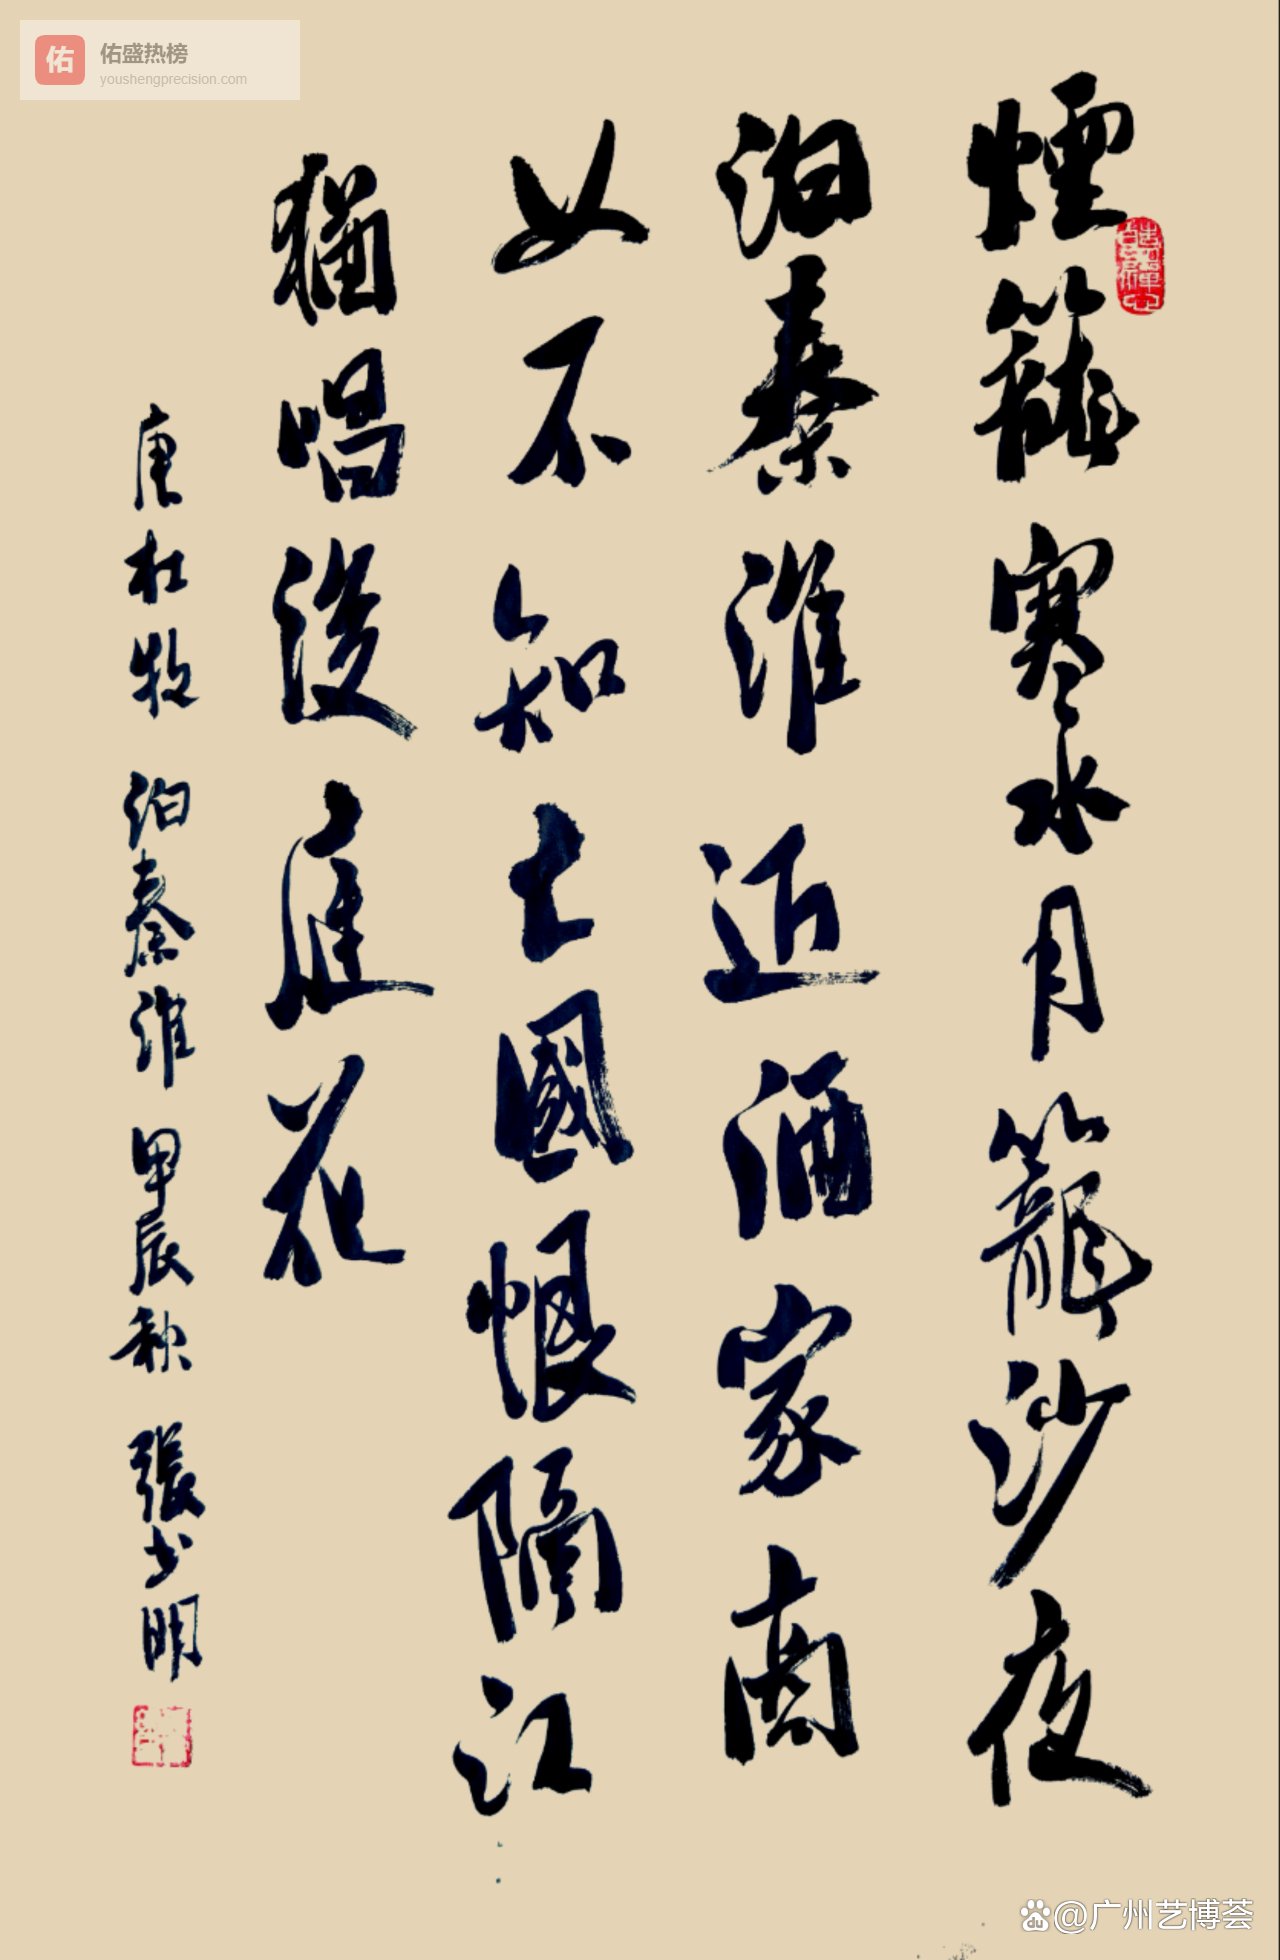 佑
佑盛热榜
youshengprecision.com
煙籠寒水月籠沙夜
泊秦淮近酒家商
女不知亡國恨隔江
猶唱後庭花
唐杜牧 泊秦淮 甲辰秋 張少明
du
@广州艺博荟